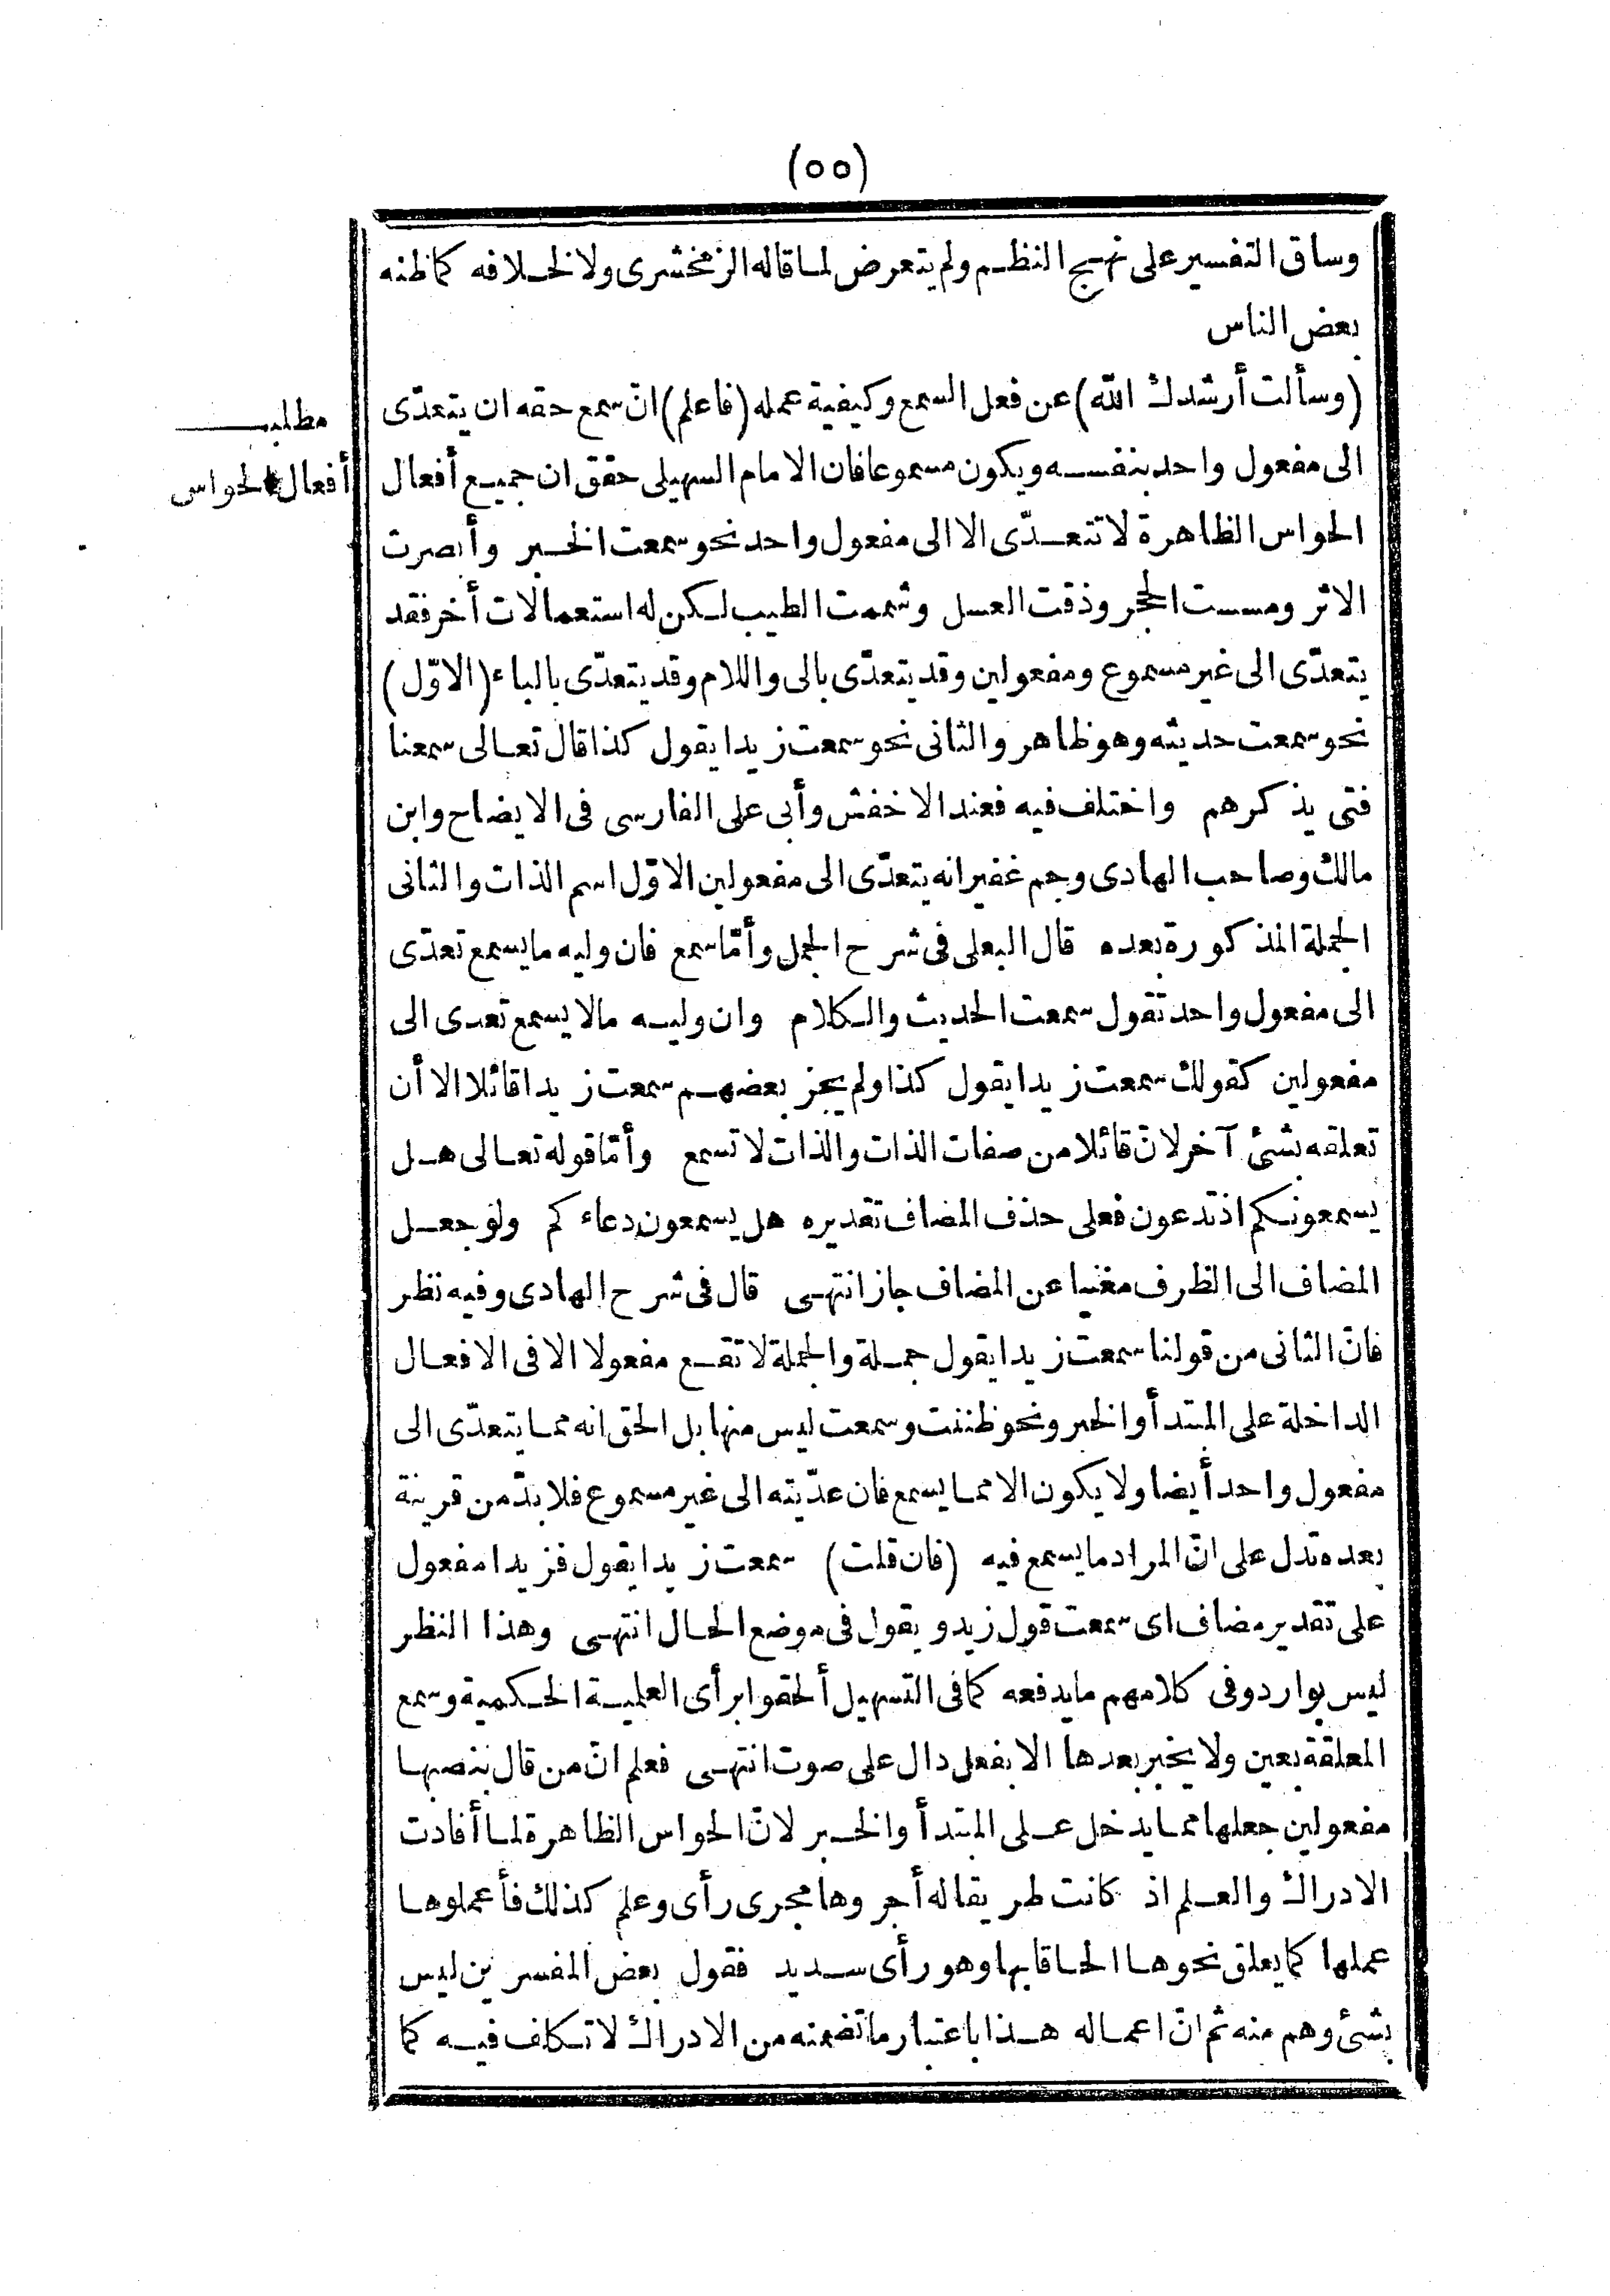 (٥٥)
وساق التفسير على نهج النظم ولم يتعرض لما قاله الزمخشرى ولا لخلافه كما ظنه
بعض الناس
(وسألت أرشدك الله) عن فعل السمع وكيفية عمله (فاعلم) انّ سمع حقه ان يتعدّى
مطلب
الى مفعول واحد بنفسه ويكون مسموعا فان الامام السهيلى حقق ان جميع أفعال
أفعال الحواس
الحواس الظاهرة لا تتعدّى الا الى مفعول واحد نحو سمعت الخبر وأبصرت
الاثر ومسست الحجر وذقت العسل وشممت الطيب لكن له استعمالات أخر فقد
يتعدّى الى غير مسموع ومفعولين وقد يتعدّى بالى واللام وقد يتعدّى بالباء (الاوّل)
نحو سمعت حديثه وهو ظاهر والثانى نحو سمعت زيدا يقول كذا قال تعالى سمعنا
فتى يذكرهم واختلف فيه فعند الاخفش وأبى على الفارسى فى الايضاح وابن
مالك وصاحب الهادى وجم غفير انه يتعدّى الى مفعولين الاوّل اسم الذات والثانى
الجملة المذكورة بعده قال البعلى فى شرح الجمل وأمّا سمع فان وليه ما يسمع تعدّى
الى مفعول واحد تقول سمعت الحديث والكلام وان وليه مالا يسمع تعدى الى
مفعولين كقولك سمعت زيدا يقول كذا ولم يجز بعضهم سمعت زيدا قائلا الا أن
تعلقه بشئ آخر لانّ قائلا من صفات الذات والذات لا تسمع وأمّا قوله تعالى هل
يسمعونكم اذ تدعون فعلى حذف المضاف تقديره هل يسمعون دعاءكم ولو جعل
المضاف الى الظرف مغنيا عن المضاف جاز انتهى قال فى شرح الهادى وفيه نظر
فانّ الثانى من قولنا سمعت زيدا يقول جملة والجملة لا تقع مفعولا الا فى الافعال
الداخلة على المبتدأ والخبر ونحو ظننت وسمعت ليس منها بل الحق انه مما يتعدّى الى
مفعول واحد أيضا ولا يكون الا مما يسمع فان عدّيته الى غير مسموع فلا بدّ من قرينة
بعده تدل على انّ المراد ما يسمع فيه (فان قلت) سمعت زيدا يقول فزيدا مفعول
على تقدير مضاف اى سمعت قول زيد ويقول فى موضع الحال انتهى وهذا النظر
ليس بوارد وفى كلامهم ما يدفعه كما فى التسهيل ألحقوا برأى العلمية الحكمية وسمع
المعلقة بعين ولا يخبر بعدها الا بفعل دال على صوت انتهى فعلم انّ من قال بنصبها
مفعولين جعلها مما يدخل على المبتدأ والخبر لانّ الحواس الظاهرة لما أفادت
الادراك والعلم اذ كانت طريقا له أجروها مجرى رأى وعلم كذلك فأعملوها
عملها كما يعلق نحوها الحاقا بها وهو رأى سديد فقول بعض المفسرين ليس
بشئ وهم منه ثم انّ اعماله هذا باعتبار ما تضمنه من الادراك لا تكلف فيه كما